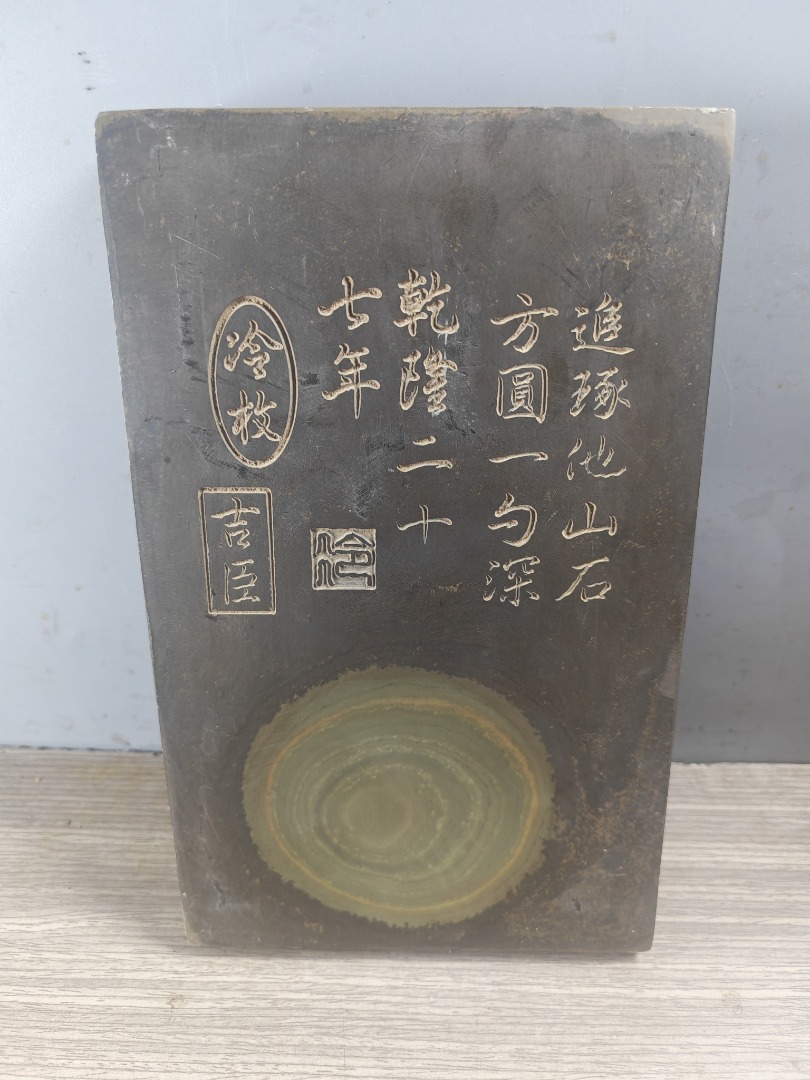 進琢他山石
方圓一勺深
乾隆二十
七年
冷枚
吉臣